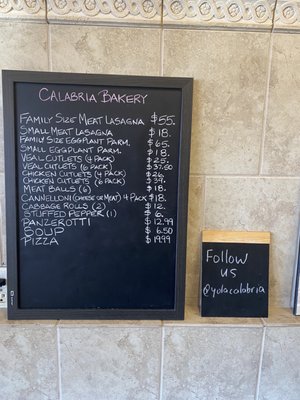 Calabria Bakery
Family Size Meat Lasagna $55.
Small Meat Lasagna $18.
Family Size Eggplant Parm. $65.
Small Eggplant Parm. $18.
Veal Cutlets (4 pack) $25.
Veal Cutlets (6 pack) $37.50
Chicken Cutlets (4 pack) $26.
Chicken Cutlets (6 pack) $39.
Meat Balls (6) $18.
Cannelloni (cheese or meat) 4 Pack $18.
Cabbage Rolls (2) $12.
Stuffed Pepper (1) $6.
Panzerotti $12.99
Soup $6.50
Pizza $19.99
Follow
us
@yolacalabria